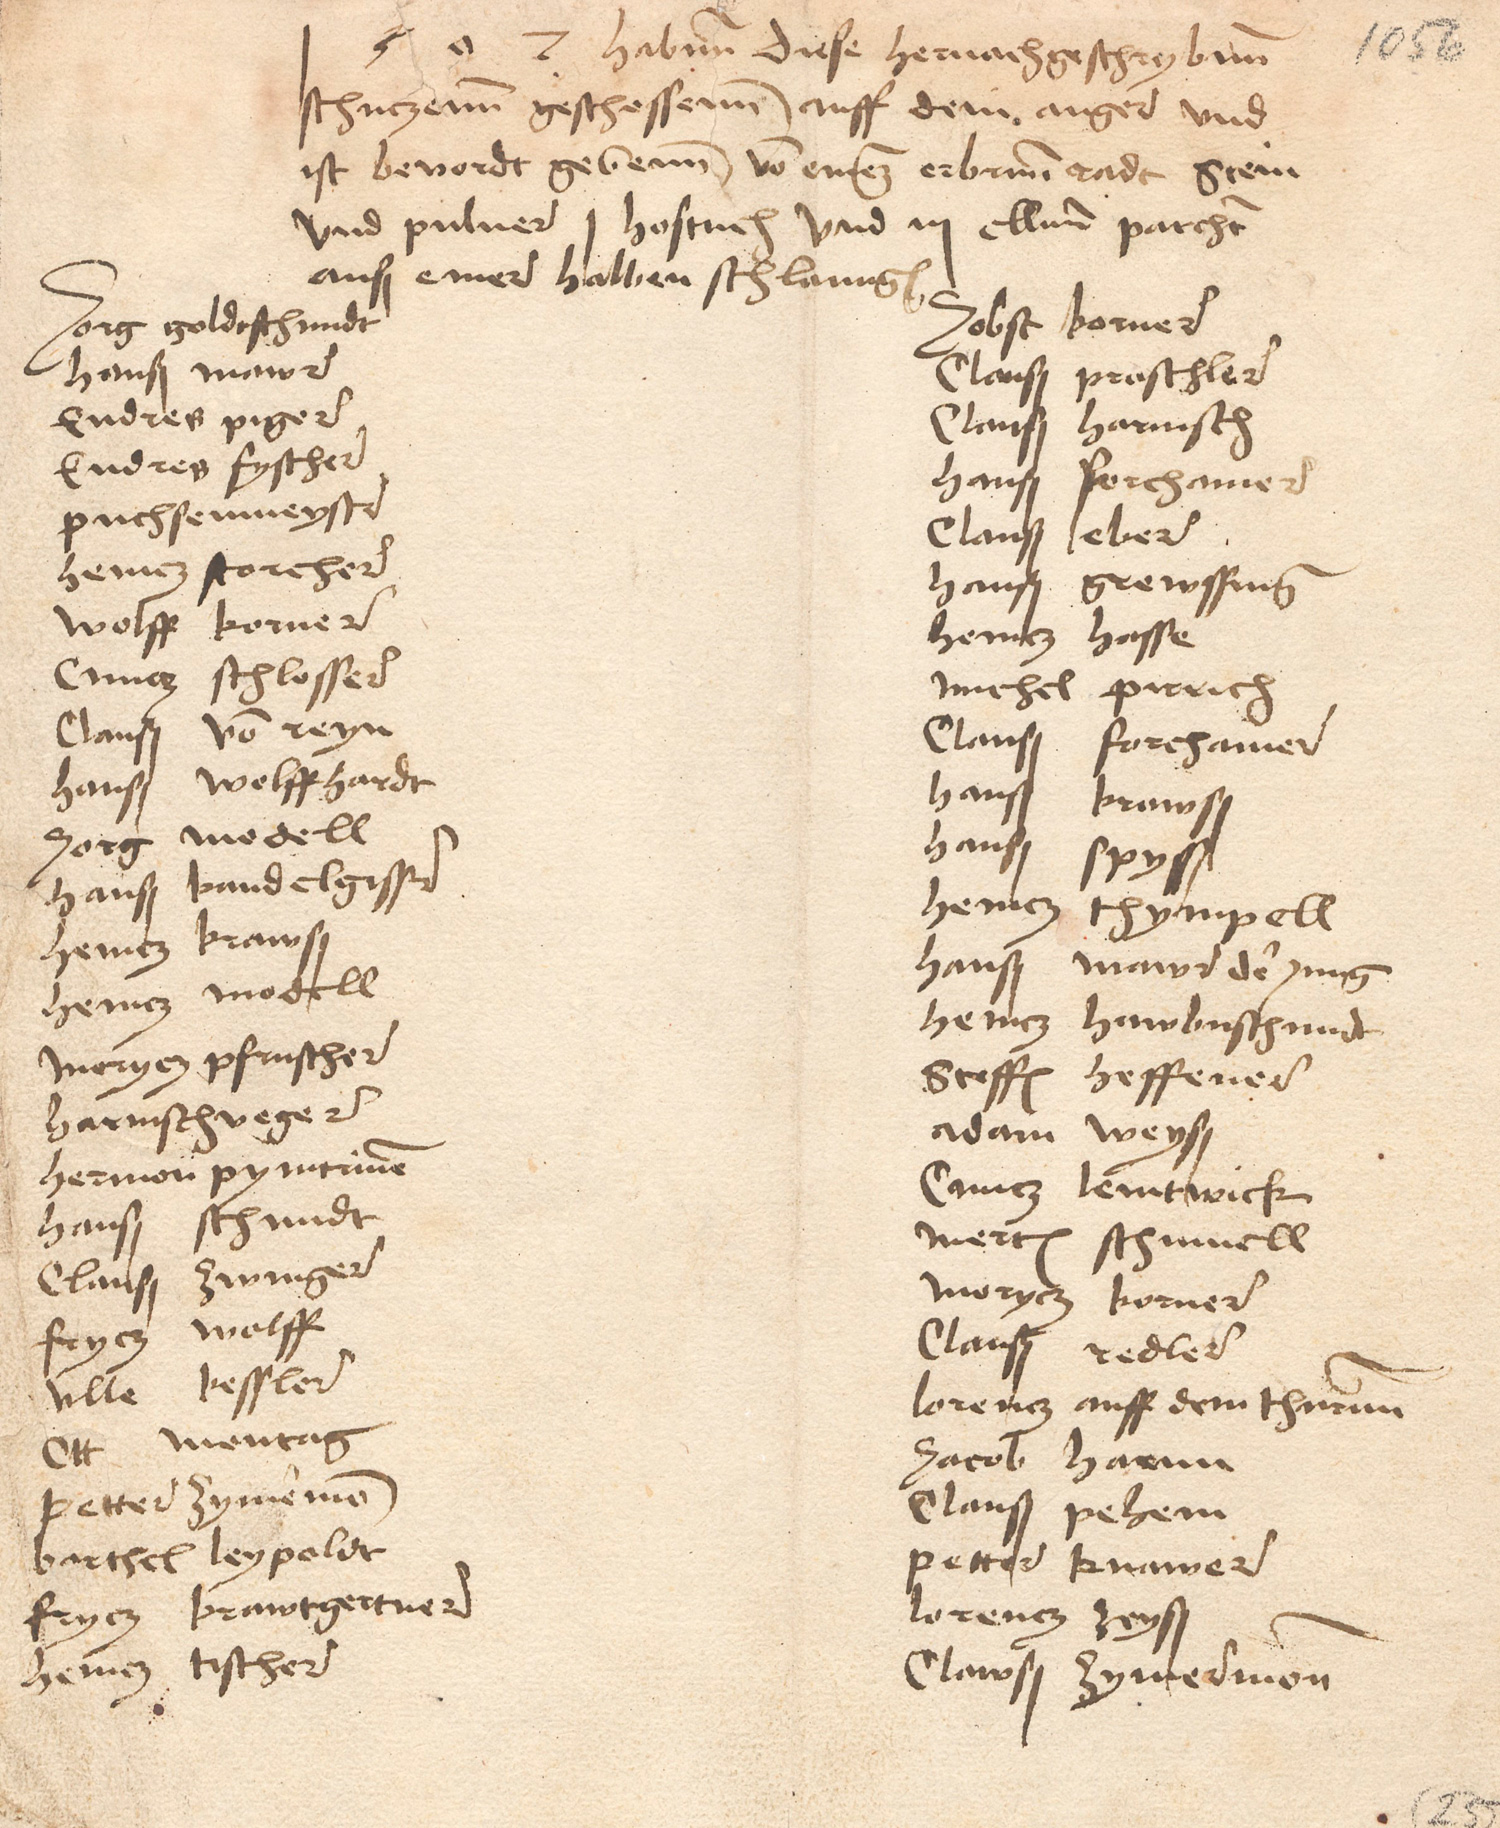 1507 habenn diese hernachgeschrybenn
1056
schuczenn geschossenn auff dem anger und
ist bevordt gebenn vō eynē erbrinn radt Stein
Vnd puluer j hostuch Vnd iij ellenn parcht
auß einer halben schlang
Jorg goldtschmidt
hanß mawr
Endres piger
Endres fyscher
puchsenmeystr
heincz storcher
wolff korner
Cuncz schlosser
Clauß vō reyn
hanß wolffhardt
Jorg modell
hanß kandelgisser
heincz krawß
heincz modell
Morycz pfruscher
harnischveger
hermon
hanß schmidt
Clauß Zwinger
frycz wolff
Vlle kessler
Ott montag
Petter Zymermō
barthel leypoldt
frycz krawtgertner
heincz tischer
Jobst korner
Clauß praschler
Clauß harnisch
hanß forchamer
Clauß eber
hanß grewssing
heincz hasse
michel pirrich
Clauß forchamer
hanß krawß
hanß spyß
heincz thympell
hanß mawr der jung
heincz hawbnschmidt
Steffn heffener
adam weyß
Cuncz lemtwick
mertn schimell
Morycz korner
Clauß redler
lorencz auff dem thurnn
Jacob harnn
Clauß pehem
Petter knawer
lorencz Zeyß
Clawß Zymermon
(25)